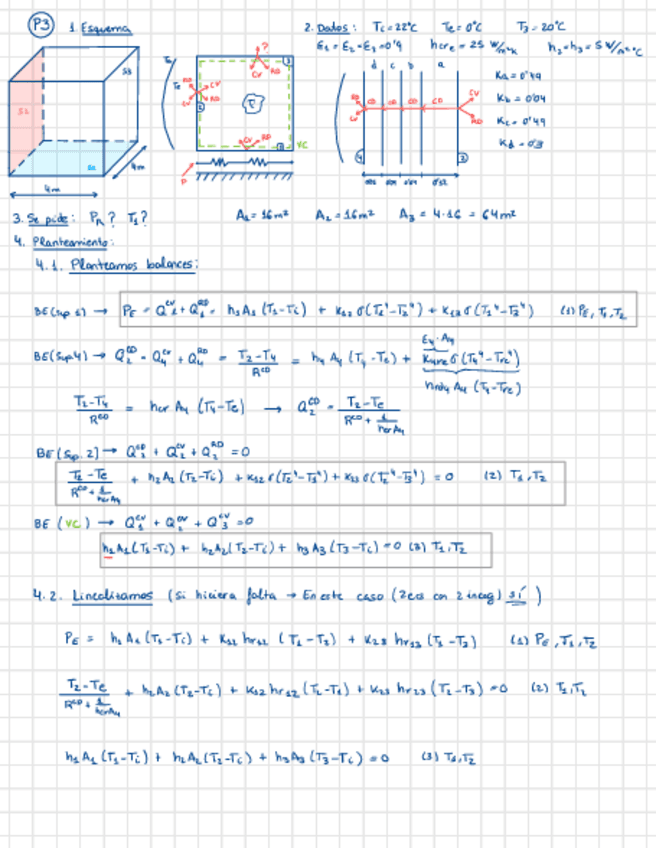 P3
1. Esquema
2. Datos: Ti=22°C Te=0°C T3=20°C
ε1=ε2=ε3=0'9 hcre=25 W/m²K h2=h3=5 W/m²°C
S3
S1
4m
4m
Te
CV
RD
CV
RD
CV
RD
VC
P
d c b a
CD CD CD CD
CV
RD
Ka=0'49
Kb=0'04
Kc=0'49
Kd=0'3
3. Se pide: PR? T1? A1=16m² A2=16m² A3=4·16=64m²
4. Planteamiento:
4.1. Planteamos balances:
PE = Q1^CV + Q1^RD = h1A1(T1-Ti) + K12σ(T1⁴-T2⁴) + K13σ(T1⁴-T3⁴) (1) PE, T1, T2
BE(Sup4) → Q2^CD = Q4^CV + Q4^RD = (T2-T4)/R^CD = h4 A4 (T4-Te) + K4reσ(T4⁴-Tre⁴)
ε4·A4
hrd4 A4 (T4-Tre)
(T2-T4)/R^CD = hcr A4 (T4-Te) → Q2^CD = (T2-Te)/(R^CD + 1/(hcrA4))
BE(Sup. 2) → Q2^CD + Q2^CV + Q2^RD = 0
(T2-Te)/(R^CD + 1/(hcrA4)) + h2A2(T2-Ti) + K12σ(T2⁴-T1⁴) + K23σ(T2⁴-T3⁴) = 0 (2) T1, T2
BE (VC) → Q1^CV + Q2^CV + Q3^CV = 0
h1A1(T1-Ti) + h2A2(T2-Ti) + h3A3(T3-Ti) = 0 (3) T1, T2
4.2. Linealizamos (Si hiciera falta → En este caso (2ecs con 2 incog) sí)
PE = h1A1(T1-Ti) + K12 hr12 (T1-T2) + K13 hr13 (T1-T3) (1) PE, T1, T2
(T2-Te)/(R^CD + 1/(hcrA4)) + h2A2(T2-Ti) + K12 hr12(T2-T1) + K23 hr23(T2-T3) = 0 (2) T1, T2
h1A1(T1-Ti) + h2A2(T2-Ti) + h3A3(T3-Ti) = 0 (3) T1, T2